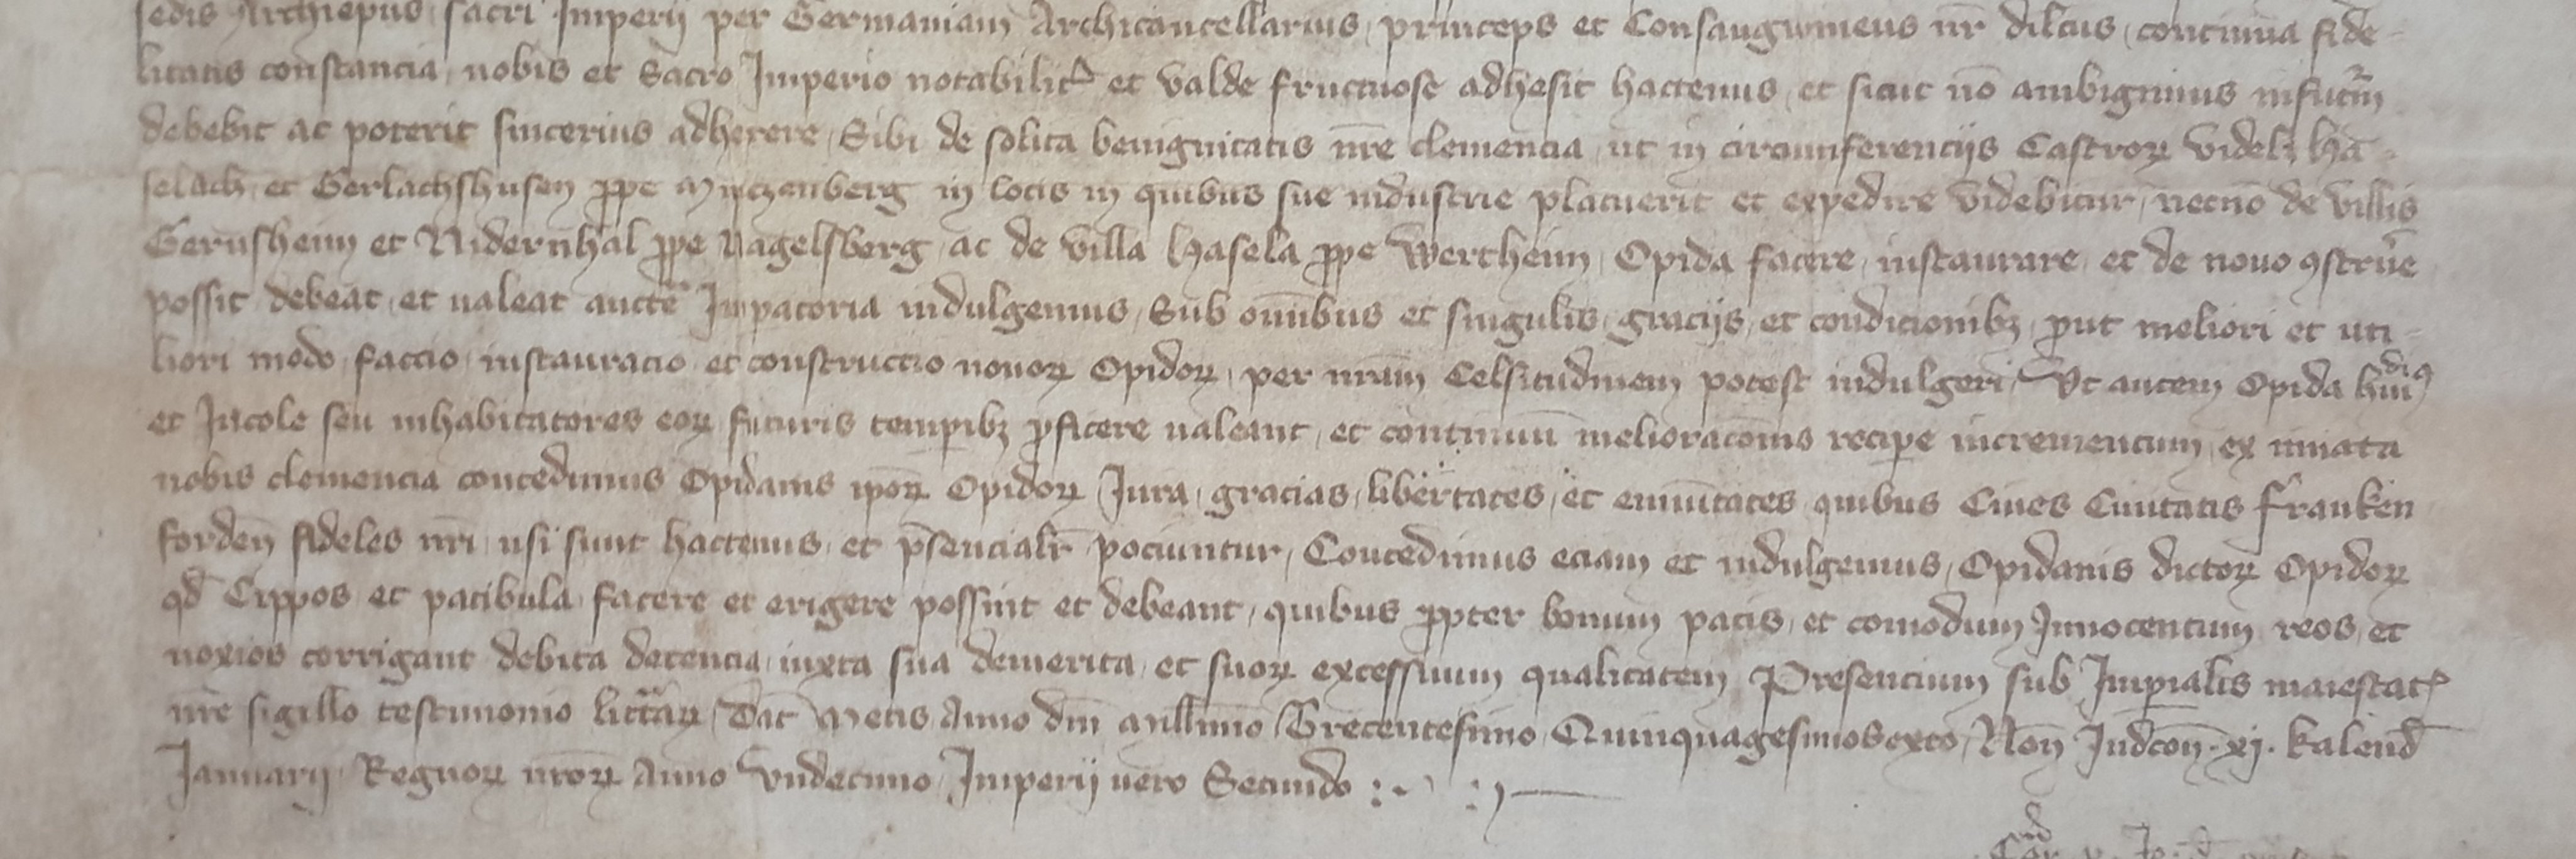 sedis Archiepus sacri Imperij per Germaniam Archicancellarius, princeps et Consangwineus nr̄ dilcūs, continua fide-
litatis constancia, nobis et Sacro Imperio notabilit᷑ et valde fructuose adhesit hactenus, et sicut nō ambigimus infutur̄m
debebit ac poterit sincerius adherere, Sibi de solita benignitatis nrē clemencia, ut in circumferencijs Castroꝝ videlꝫ Ha-
selach, et Gerlachshusen ꝓpe Mintzenberg in locis in quibus sue industrie placuerit et expedire videbitur, necnō de villis
Gernsheim et Nidernhal ꝓpe Nagelsberg, ac de villa Hasela ꝓpe Wertheim, Opida facere, instaurare, et de nouo ꝯstrūe
possit debeat, et ualeat auctē Impatoria indulgemus, Sub om̄ibus et singulis, gracijs, et condicionibꝫ, ꝓut meliori et uti-
liori modo, faccio, instauracio et constructio nouoꝝ Opidoꝝ, per nrām Celsitudinem potest indulgeri, Vt autem Opida huiꝰdiꝰ
et Incole seu inhabitatores eoꝝ futuris tempibꝫ ꝓficere ualeant, et continuū melioracōnis recipe incrementum, ex innata
nobis clemencia concedimus Opidanis ipōꝝ Opidoꝝ Jura, gracias, libertates, et emūitates, quibus Ciues Ciuitatis Franken
forden̄ fideles nrī, usi sunt hactenus, et p̄sencialr̄ pociuntur, Concedimus eciam et indulgemus, Opidanis dictoꝝ Opidoꝝ
qd̄ Cippos et patibula facere et erigere possint et debeant, quibus ꝓpter bonum pacis, et comodum Innocentum, reos, et
noxios corrigant debita decencia, iuxta sua demerita, et suoꝝ excessuum qualitatem, Presencium sub Imperialis maiestatꝭ
nrē sigillo testimonio littr̄aꝝ, Dat̄ Metis Anno dm̄ Millīmo Trecentesimo Quinquagesimosexto, Non̄ Indcōn̄ . xj. kalend̄
Januarij, Regnoꝝ nrōꝝ Anno Vndecimo, Imperij uero Secundo :·~ :)—